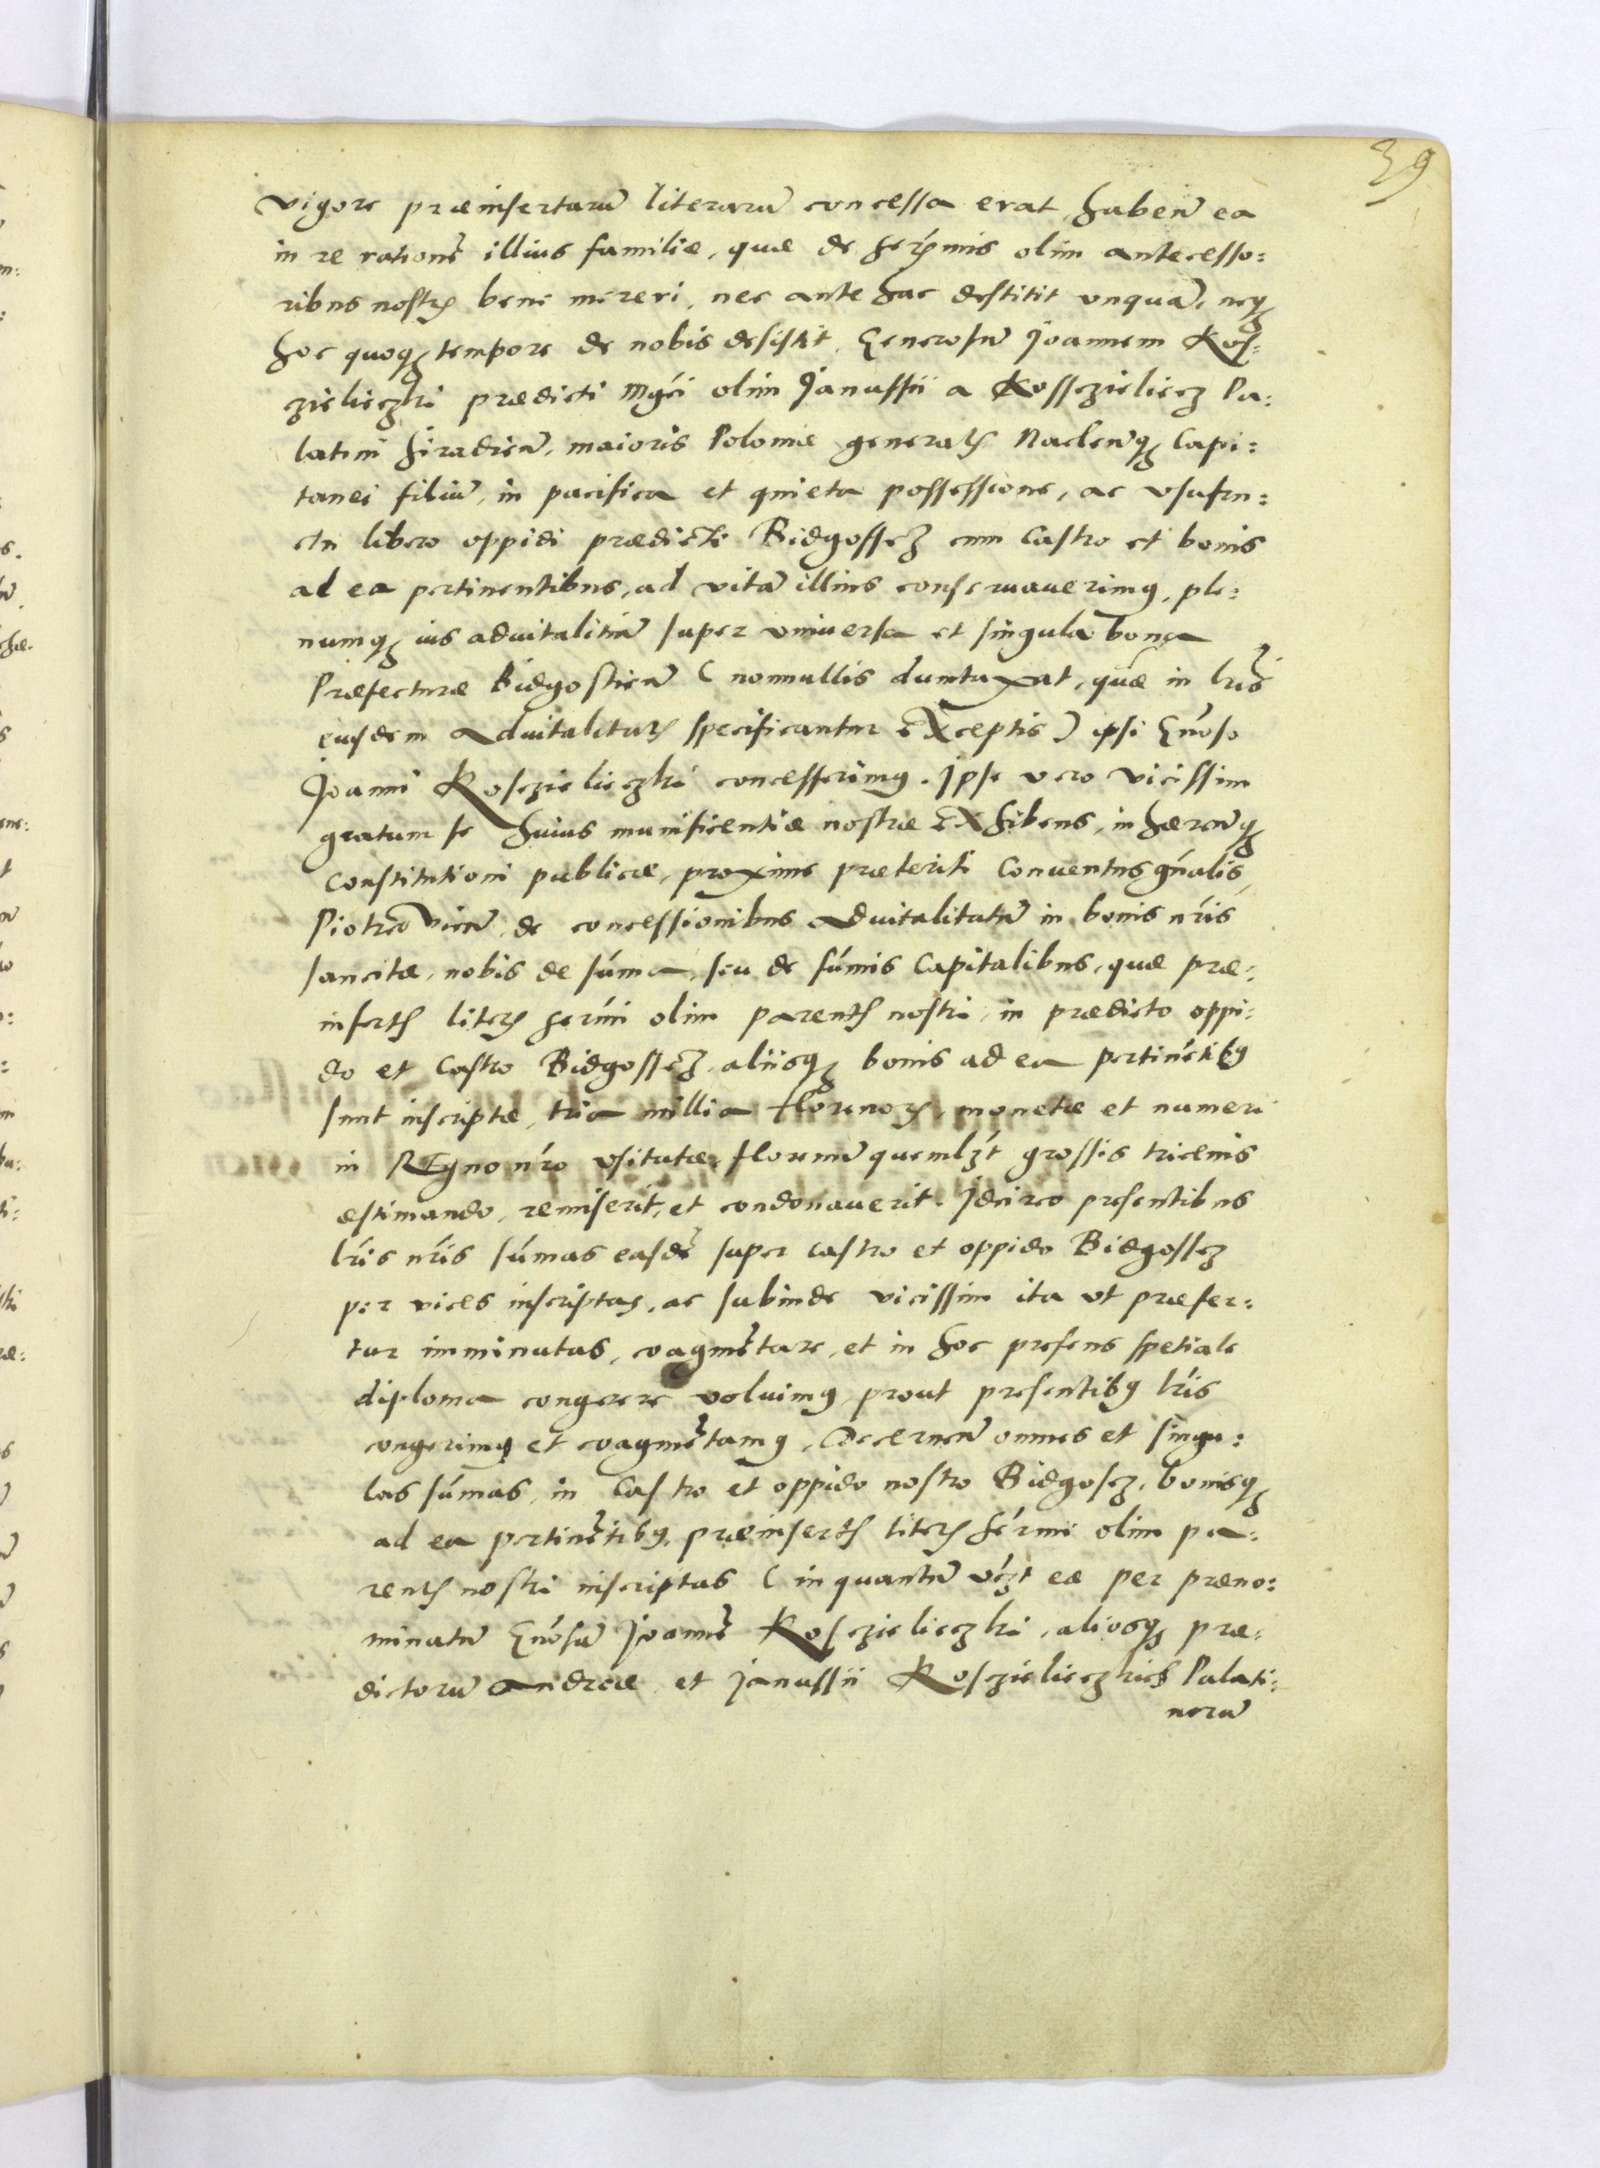 39
vigore præinsertarū literarū concessa erat, habeñ ea
in re rationē illius familiæ, quæ de serymis olim antecesso:
ribus nostrꝭ bene mereri, nec ante hac destitit vnquā, neqꝫ
hoc quoqꝫ tempore de nobis desistit, Generosū Joannem Kos:
czielieczki prædicti Mgci olim Janussii a Kossczieliecz Pa:
latini Siradień, maioris Poloniæ generalꝭ Naclenꝗꝫ Capi:
tanei filiū, in pacifica et quieta possessione, ac vsufru:
ctu libero oppidi prædicti Bidgosscz cum Castro et bonis
ad ea pertinentibus, ad vitā illius conseruauerimꝰ, ple:
numqꝫ ius aduitalitiū super vniuersa et singula bona
Præfecturæ Bidgostień (nonnullis duntaxat, quæ in lris
eiusdem Aduitalitatꝭ specificantur exceptis) ipsi Gnoso
Joanni Kosczielieczki concesserimꝰ. Ipse vero vicissim
gratum se huius munificentiæ nostræ exhibens, inhæreńqꝫ
Constitutioni publicæ, proxime præteriti Conuentus gńalis
Piotrcovień, de concessionibus aduitalitatū in bonis nŕis
sancitæ, nobis de súma, seu de súmis Capitalibus, quæ præ:
insertꝭ literꝭ sermi olim parentꝭ nostri, in prædicto oppi:
do et Castro Bidgosscz, aliisqꝫ bonis ad ea pertinētibꝰ
sunt inscriptæ, tria millia florenorꝭ, monetæ et numeri
in Regno nŕo vsitatæ, florenū quemlzt grossis tricenis
æstimando, remiserit, et condonauerit. Idcirco presentibus
lris nŕis súmas easdē super Castro et oppido Bidgossz
per vices inscriptas, ac subinde vicissim ita vt præfer:
tur imminutas, coagmētare, et in hoc presens spetiale
diploma congerere voluimꝰ, prout presentibꝰ lris
congerimꝰ et coagmētamꝰ, Decerneń omnes et singu:
las súmas, in Castro et oppido nostro Bidgoscz, bonisqꝫ
ad ea pertinētibꝰ, præinsertꝭ literꝭ sermi olim pa:
rentꝭ nostri inscriptas (in quantū vczt eæ per præno:
minatū Gnosū Joannē Kosczielieczki, aliosqꝫ præ:
dictorū Andreæ et Janussii Kosczieliczkich Palati:
norū